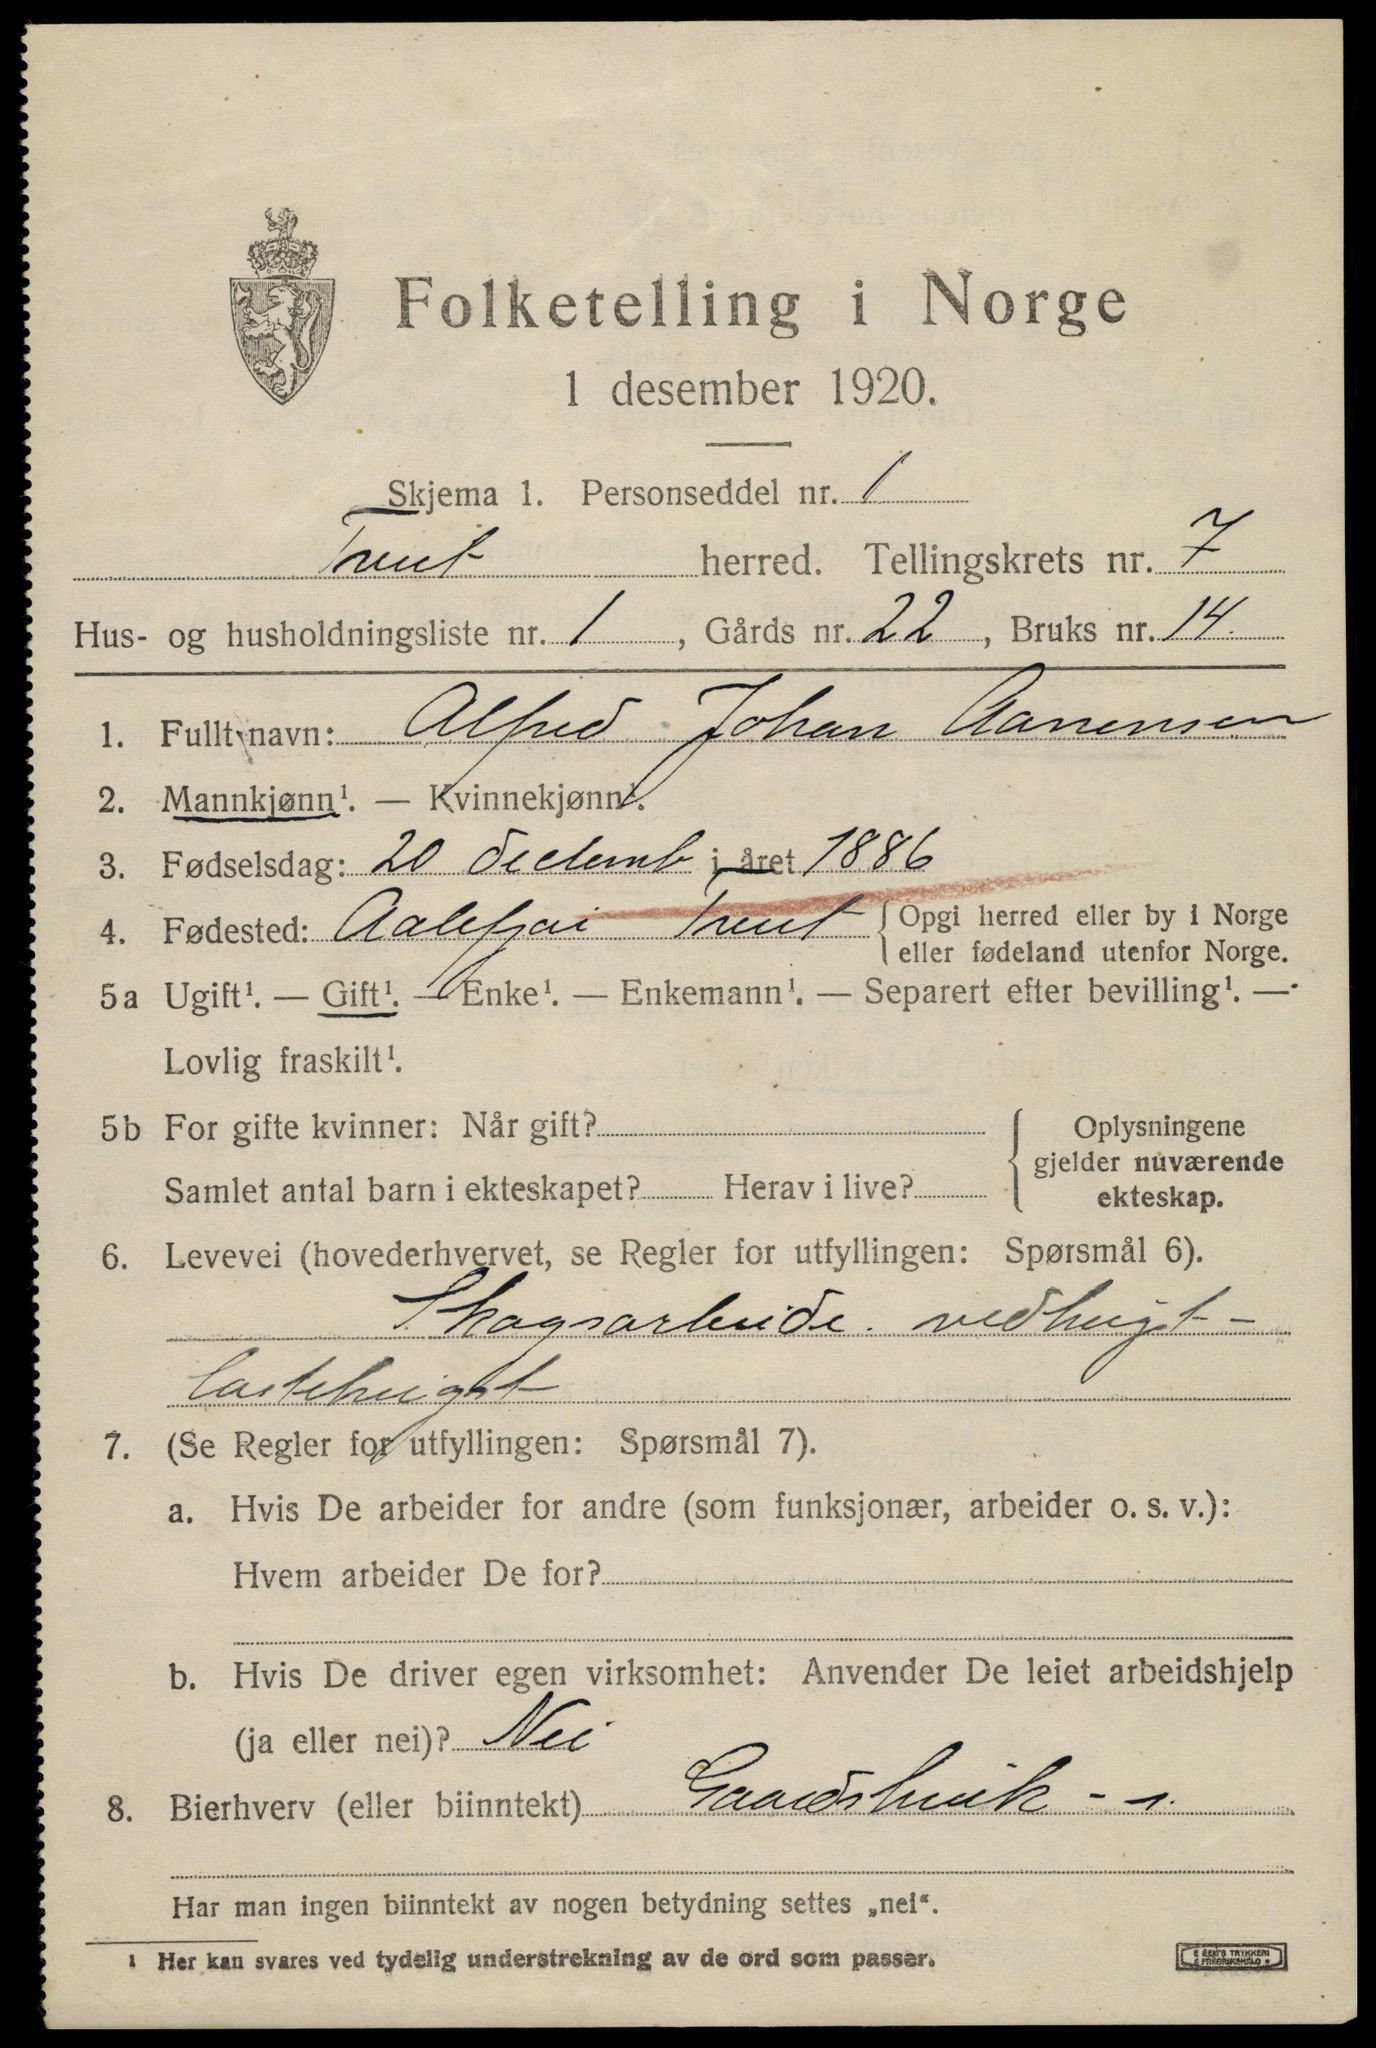 Folketelling i Norge
1 desember 1920.
Skjema 1. Personseddel nr. 1
Tveit herred. Tellingskrets nr. 7
Hus- og husholdningsliste nr. 1, Gårds nr. 22, Bruks nr. 14.
1. Fullt navn: Alfred Johan Aanensen
2. Mannkjønn¹. — Kvinnekjønn¹.
3. Fødselsdag: 20 decemb i året 1886
4. Fødested: Aalefjær Tveit { Opgi herred eller by i Norge
eller fødeland utenfor Norge.
5a Ugift¹. — Gift¹. — Enke¹. — Enkemann¹. — Separert efter bevilling¹. —
Lovlig fraskilt¹.
5b For gifte kvinner: Når gift? { Oplysningene
gjelder nuværende
Samlet antal barn i ekteskapet? Herav i live? ekteskap.
6. Levevei (hovederhvervet, se Regler for utfyllingen: Spørsmål 6).
Skogsarbeide. vedhugst -
lastehugst
7. (Se Regler for utfyllingen: Spørsmål 7).
a. Hvis De arbeider for andre (som funksjonær, arbeider o. s. v.):
Hvem arbeider De for?
b. Hvis De driver egen virksomhet: Anvender De leiet arbeidshjelp
(ja eller nei)? Nei
8. Bierhverv (eller biinntekt) Gaardsbruk - s.
Har man ingen biinntekt av nogen betydning settes „nei“.
¹ Her kan svares ved tydelig understrekning av de ord som passer.
E SEM'S TRYKKERI
FREDRIKSHALD